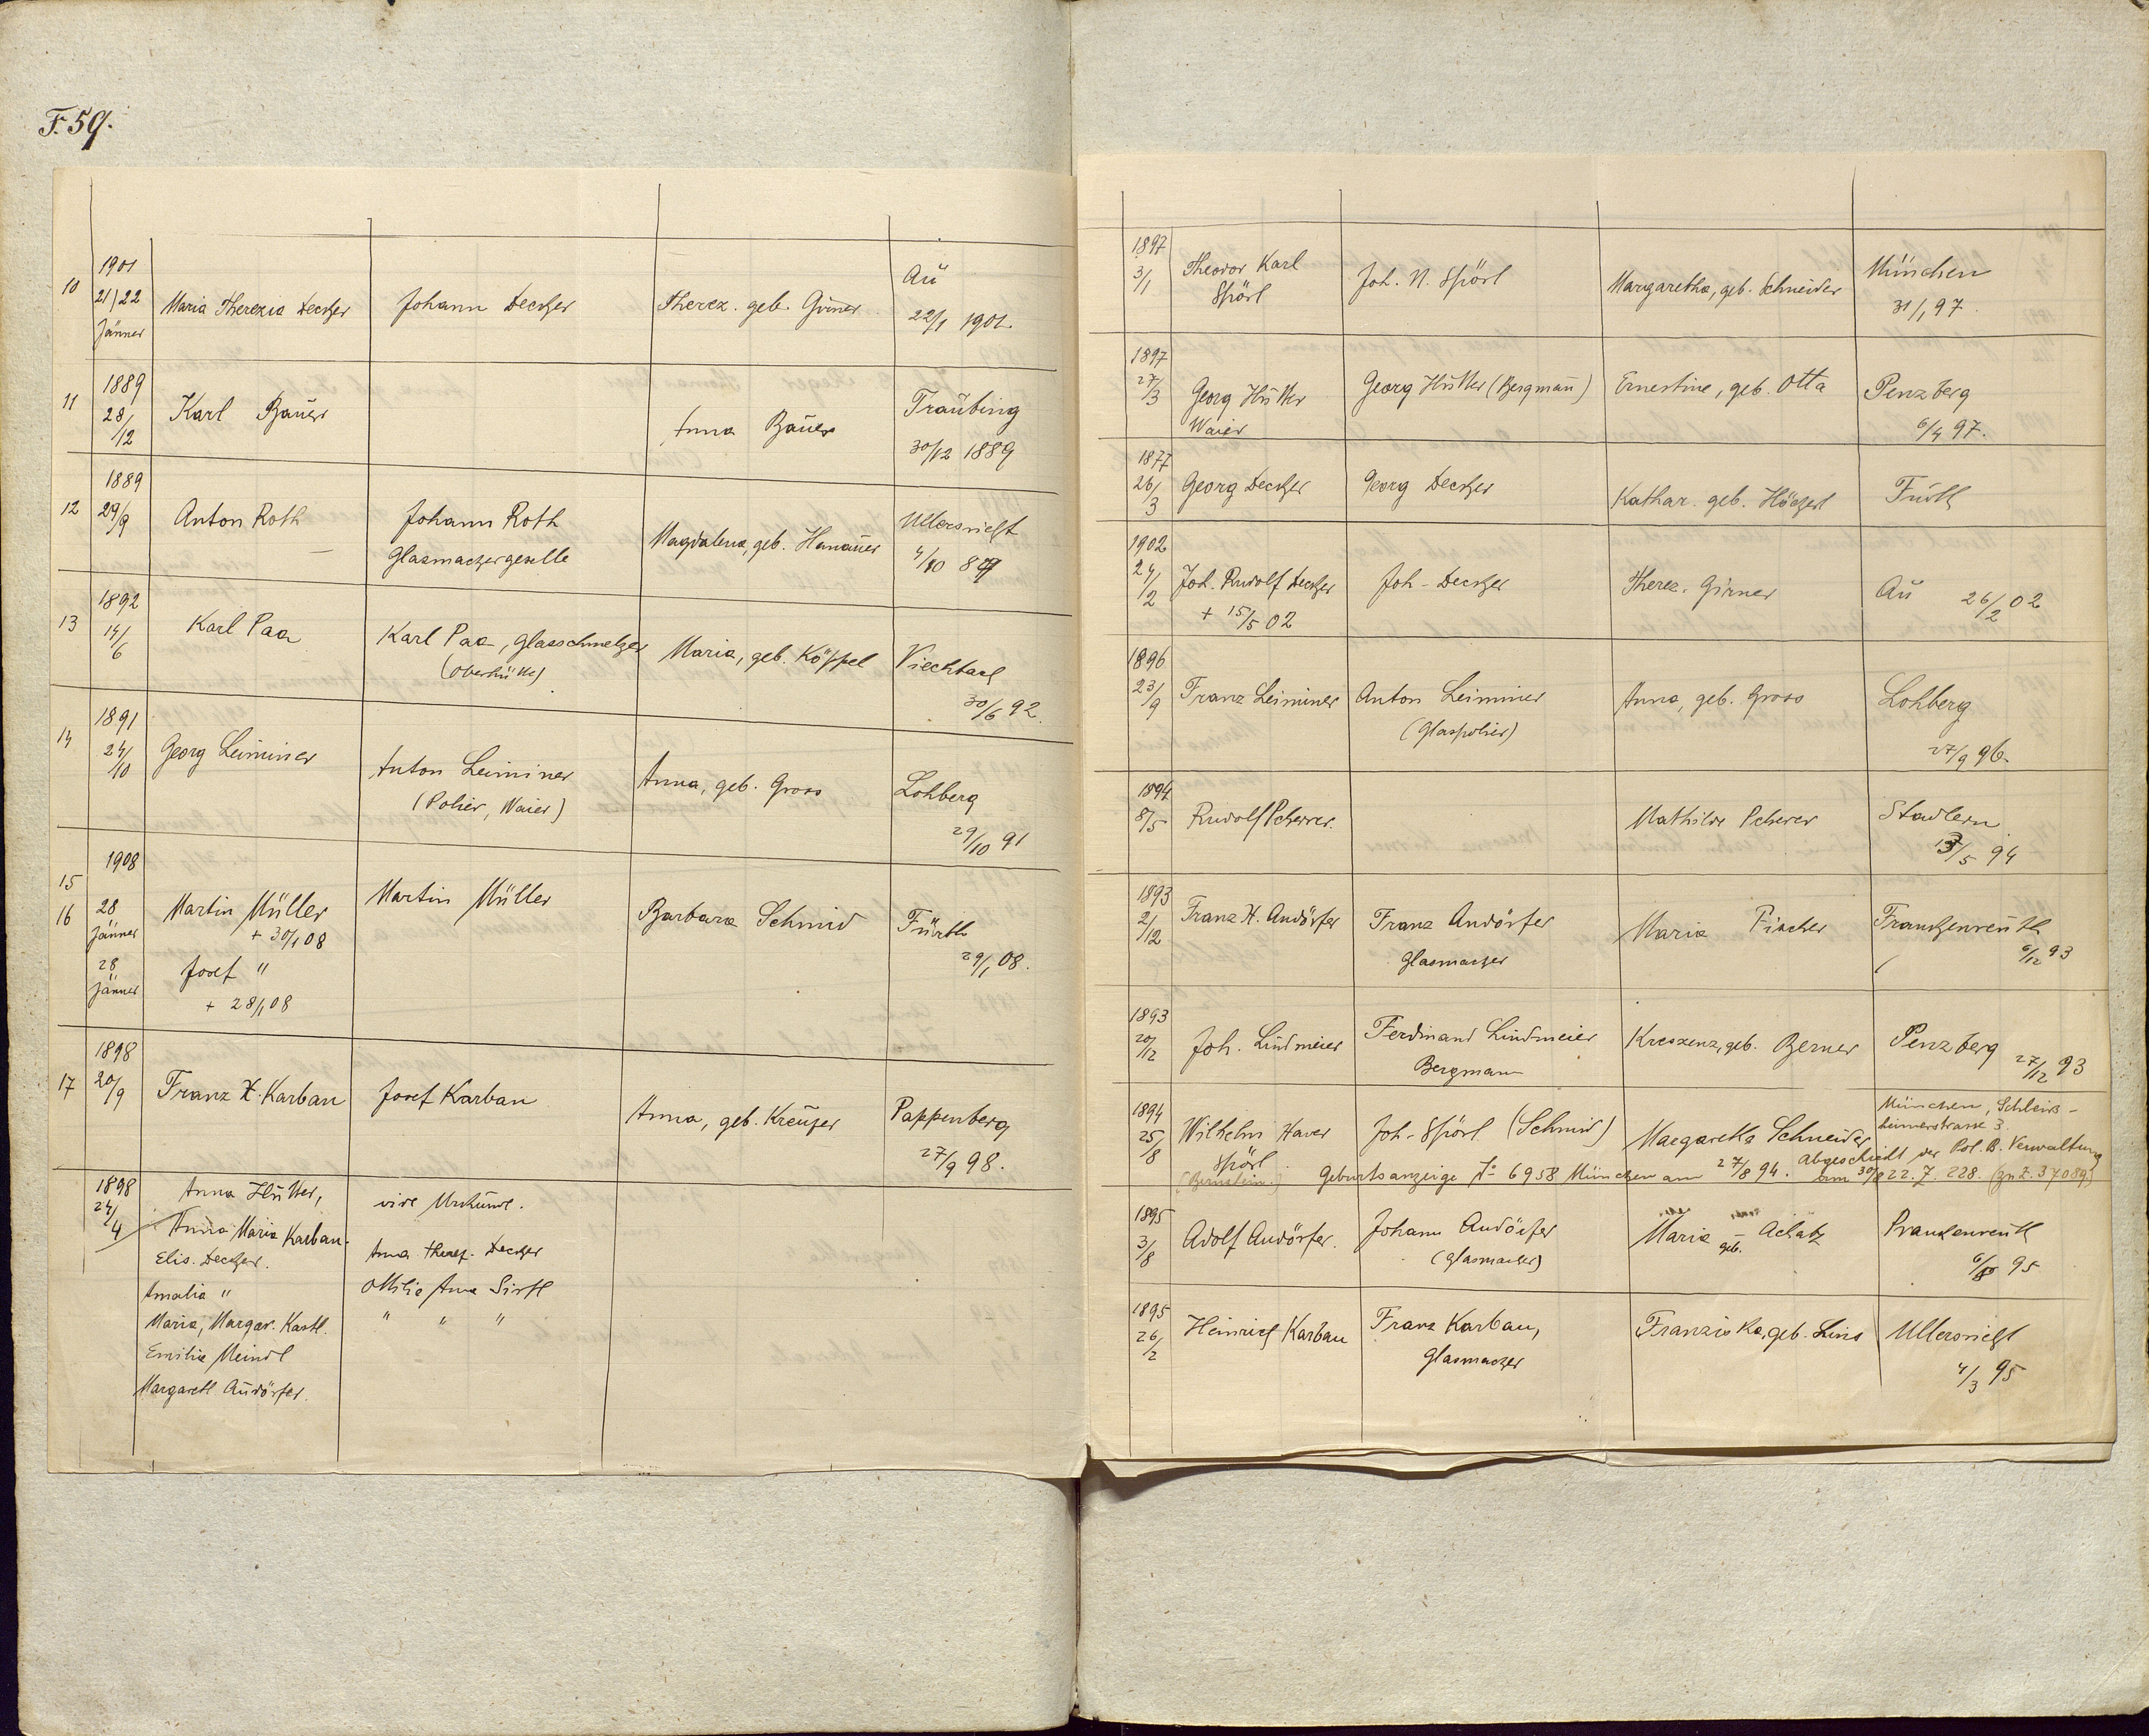 F. 59.
10 1901 21/22 Jänner Maria Therezia Decker Johann Decker Therez. geb. Girner Au 22/1 1901.
11 1889 28/12 Karl Bauer Anna Bauer Traubing 30/12 1889
12 1889 29/9 Anton Roth Johann Roth Glasmachergeselle Magdalena, geb. Hanauer Ullersricht 4/10 89
13 1892 14/6 Karl Paa Karl Paa, Glasschmelzer (Oberhütte) Maria, geb. Köppel Viechtach 30/6 92.
14 1891 24/10 Georg Leiminer Anton Leiminer (Polier, Waier) Anna, geb. Gross Lohberg 29/10 91
15 1908
16 28 Jänner Martin Müller + 30/1 08 Martin Müller Barbara Schmid Fürth 29/1 08.
28 Jänner Josef " + 28/1 08
17 1898 20/9 Franz X. Karban Josef Karban Anna, geb. Pappenberg 27/9 98.
1898 24/4 Anna Hutter, vide Urkunde.
Anna Maria Karban.
Elis. Decker. Anna Theres. Decker
Amalia " Ottilie Anna
Maria, Margar. Kastl. " " "
Emilie Meindl
Margareth Audörfer.
1897 3/1 Theodor Karl Spörl Joh. N. Spörl Margaretha, geb. Schneider München 31/1 97.
1897 27/3 Georg Hutter Waier Georg Hutter (Bergmañ) Ernestine, geb. Otta Penzberg 6/4 97.
1877 26/3 Georg Decker Georg Decker Kathar. geb. Fürth
1902 24/2 Joh. Rudolf Decker + 15/5 02 Joh. Decker Therez. Girner Au 26/2 02
1896 23/9 Franz Leiminer Anton Leiminer (Glaspolier) Anna, geb. Gross Lohberg 27/9 96.
1894 8/5 Rudolf Scherrer. Mathilde Scherer Stadlern 13/5 94
1893 2/12 Franz X. Andörfer Franz Andörfer Glasmacher Maria Fischer Frankenreuth 6/12 93
1893 20/12 Joh. Lindmeier Ferdinand Lindmeier Bergmann Kreszenz, geb. Berner Penzberg 27/12 93
1894 25/8 Wilhelm Xaver Spörl Joh. Spörl (Schmid) Margaretha Schneider München, Schleissheimerstrasse 3.
(Bernstein.) Geburtsanzeige No 6958 München am 27/8 94. Abgeschickt der Pol. B. Verwaltung am 30/8 22. Z. 228. (zu Z. 37089)
1895 3/8 Adolf Andörfer. Johann Andörfer (Glasmacher) Maria geb. Achatz Frankenreuth 6/8 95
1895 26/2 Heinrich Karban Franz Karban, Glasmacher Franziska, geb. Lins Ullersricht 4/3 95